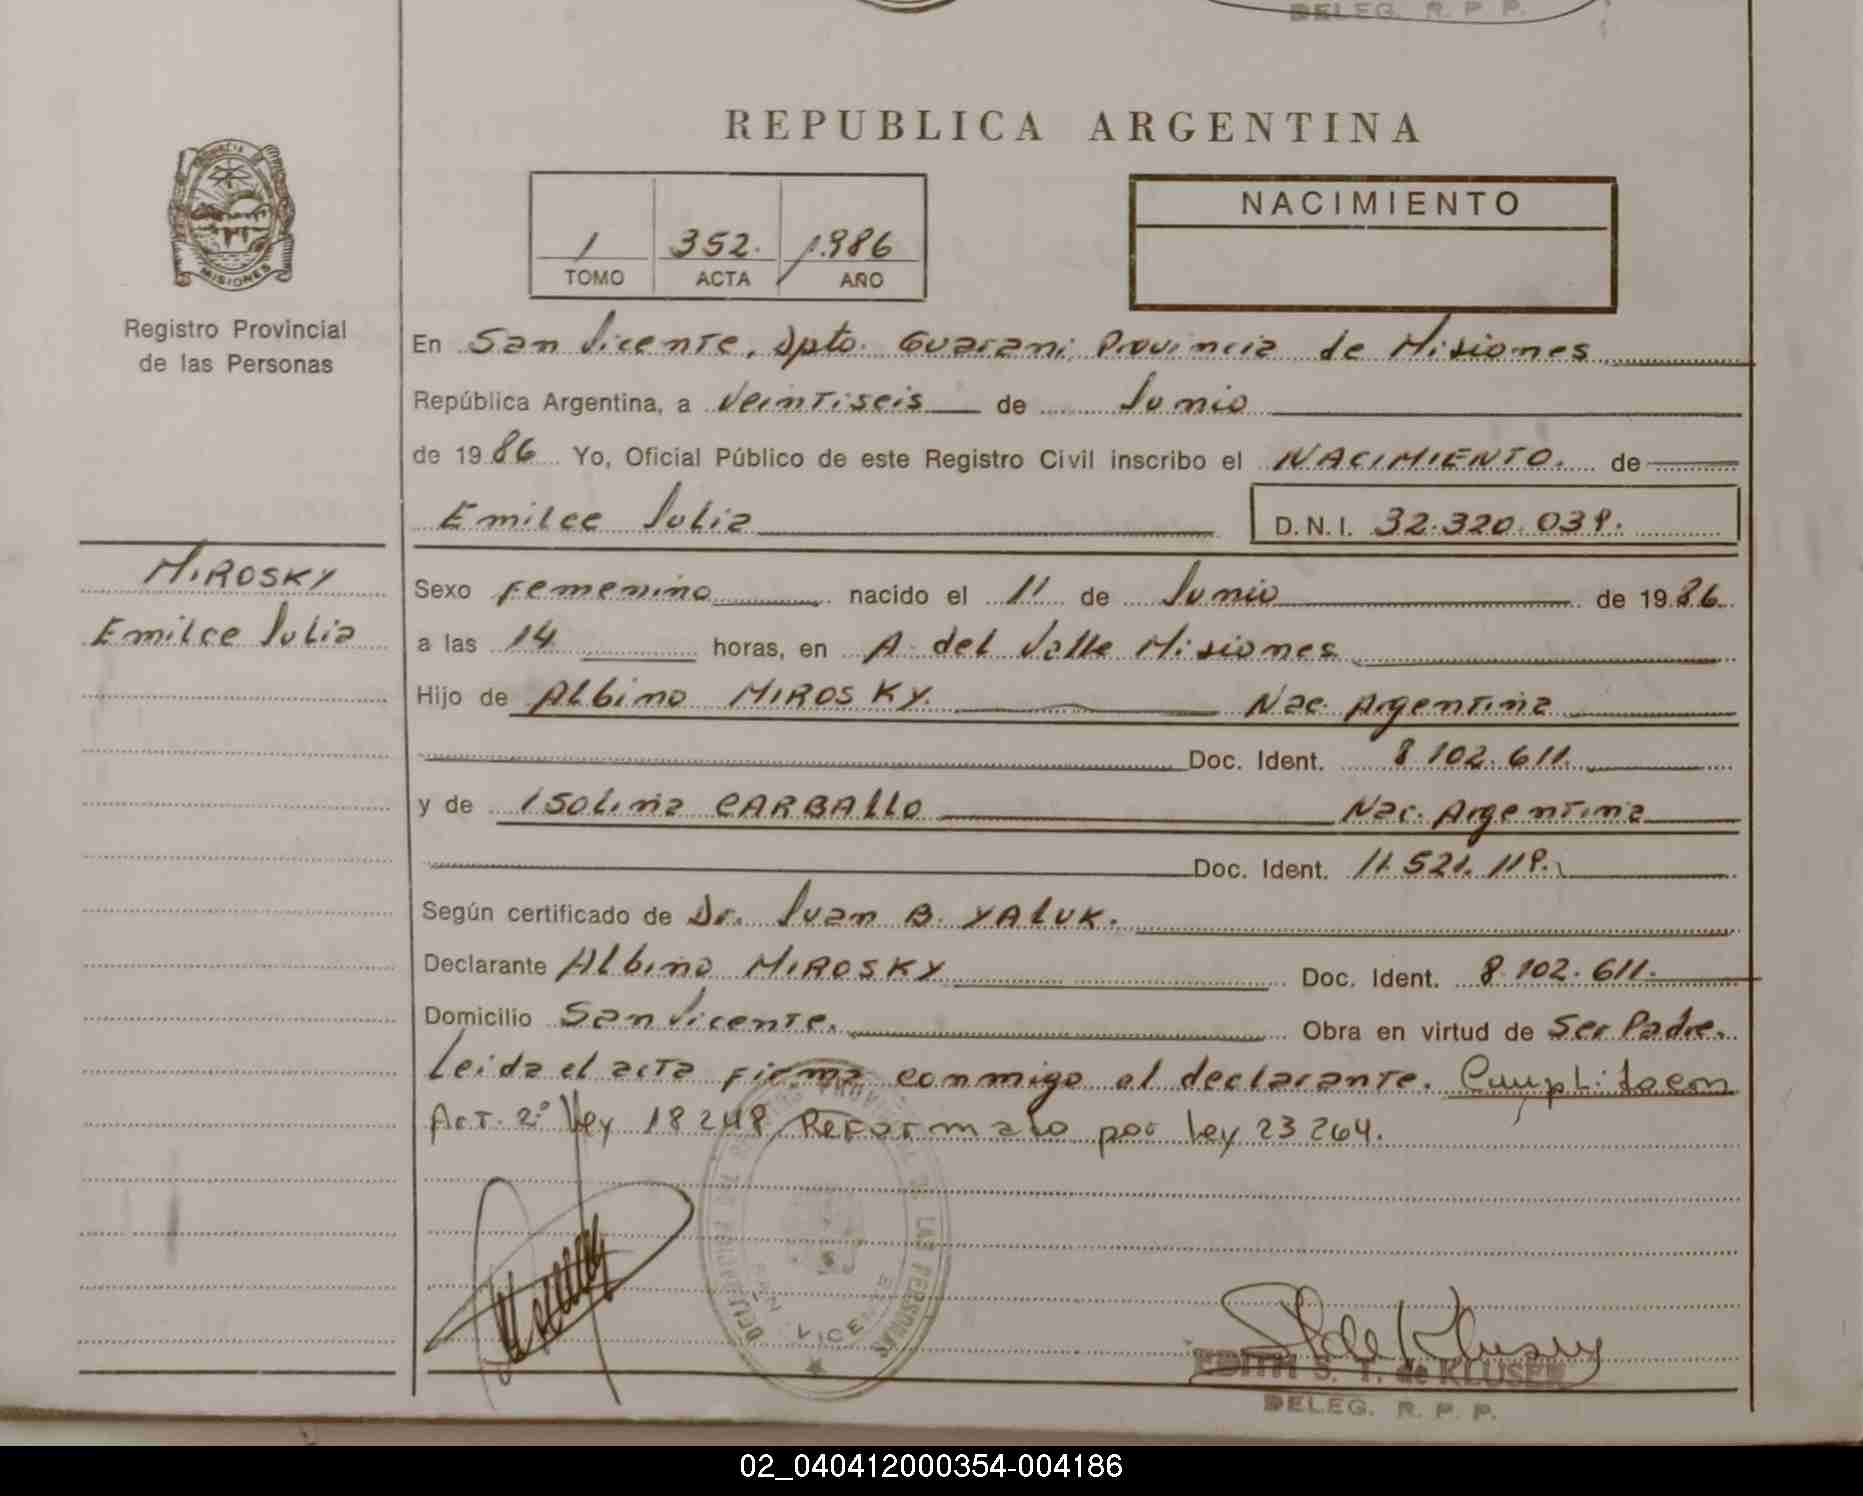 DELEG. R. P. P.
REPUBLICA ARGENTINA
PROVINCIA DE
MISIONES
Registro Provincial
de las Personas
1 352. 1.986
TOMO ACTA AÑO
NACIMIENTO
En San Vicente, Dpto. Guarani, Provincia de Misiones
República Argentina, a Veintiseis de Junio
de 1986 Yo, Oficial Público de este Registro Civil inscribo el NACIMIENTO. de
Emilce Julia D.N.I. 32.320.039.
MIROSKY
Emilce Julia
Sexo Femenino nacido el 11 de Junio de 1986
a las 14 horas, en A. del Valle Misiones
Hijo de Albino MIROSKY. Nac. Argentina
Doc. Ident. 8.102.611.
y de Isolina CARBALLO Nac. Argentina
Doc. Ident. 11.521.119.
Según certificado de Dr. Juan B. YALUK.
Declarante Albino MIROSKY Doc. Ident. 8.102.611.
Domicilio San Vicente. Obra en virtud de Ser Padre.
Leida el acta firma conmigo el declarante.
Art. 2º Ley 18248 Reformado por ley 23264.
VICENTE
LAS PERSONAS
EDITH S. T. de KLUSER
DELEG. R. P. P.
02_040412000354-004186